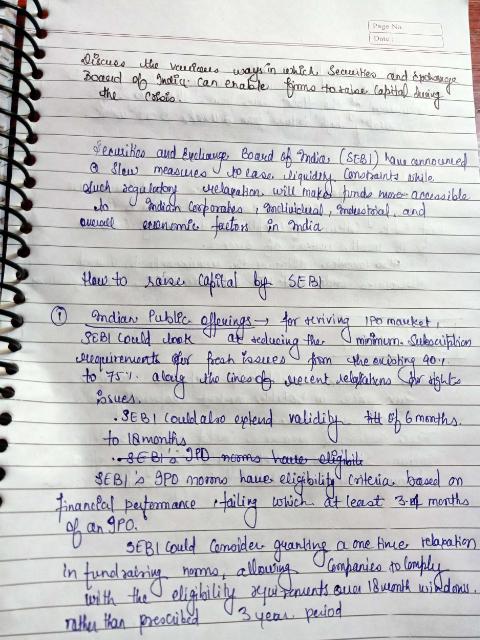 Page No.
Date:
Discuss the various ways in which Securities and Exchange
Board of India can enable firms to raise Capital during
the crisis.
Securities and Exchange Board of India (SEBI) have announced
a slew measures to ease liquidity constraints while
such regulatory relaxation will make funds more accessible
to Indian Corporates, individual, industrial, and
overall economic factors in India
How to raise capital by SEBI
① Indian Public offerings → for reviving IPO market,
SEBI could look at reducing the minimum Subscription
requirements for fresh issues from the existing 90%
to 75% along the lines of recent relaxations for rights
issues.
. SEBI could also extend validity of 6 months.
to 18 months
. SEBI's IPO norms have eligibili
SEBI's IPO norms have eligibility criteria based on
financial performance, failing which at least 3-4 months
of an IPO.
SEBI could consider granting a one time relaxation
in fundraising norms, allowing companies to comply
with the eligibility requirements over 18 month windows,
rather than prescribed 3 year period